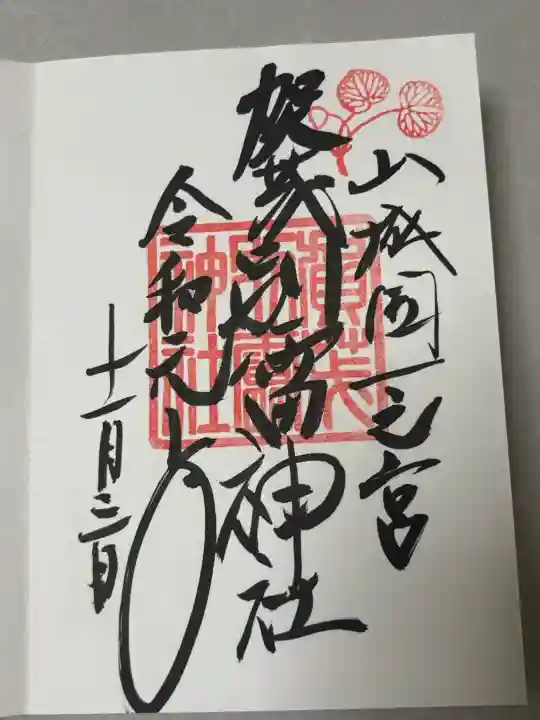 山城国一之宮
賀茂別雷神社
令和元年
十一月三日
賀茂
別雷
神社